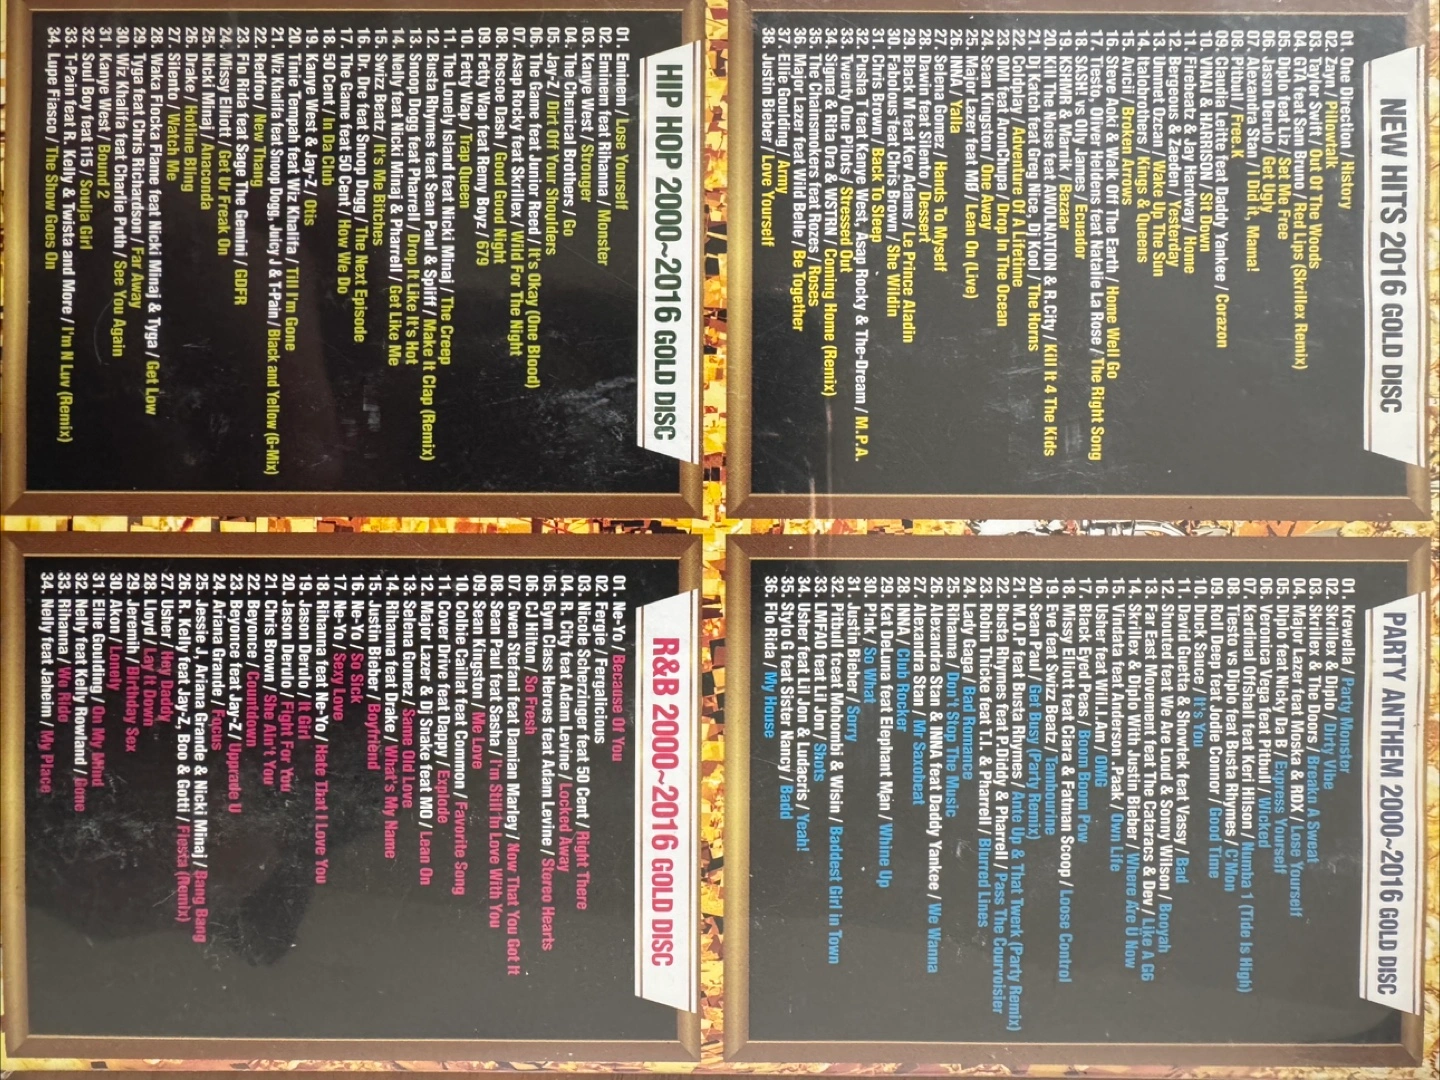 NEW HITS 2016 GOLD DISC
01. One Direction / History
02. Zayn / Pillowtalk
03. Taylor Swift / Out Of The Woods
04. GTA feat Sam Bruno / Red Lips (Skrillex Remix)
05. Diplo feat Liz / Set Me Free
06. Jason Derulo / Get Ugly
07. Alexandra Stan / I Did it, Mama!
08. Pitbull / Free.K
09. Claudia Leitte feat Daddy Yankee / Corazon
10. VINAI & HARRISON / Sit Down
11. Firebeatz & Jay Hardway / Home
12. Bergeous & Zeeden / Yesterday
13. Ummet Ozcan / Wake Up The Sun
14. Italobrothers / Kings & Queens
15. Avicii / Broken Arrows
16. Steve Aoki & Walk Off The Earth / Home Well Go
17. Tiesto, Oliver Heldens feat Natalie La Rose / The Right Song
18. SASH! vs Olly James / Ecuador
19. KSHMR & Marnik / Bazaar
20. Kill The Noise feat AWOLNATION & R.City / Kill It 4 The Kids
21. Dj Katch feat Greg Nice, Dj Kool / The Horns
22. Coldplay / Adventure Of A Lifetime
23. OMI feat AronChupa / Drop In The Ocean
24. Sean Kingston / One Away
25. Major Lazer feat MØ / Lean On (Live)
26. INNA / Yalla
27. Selena Gomez / Hands To Myself
28. Dawin feat Silento / Dessert
29. Black M feat Kev Adams / Le Prince Aladin
30. Fabolous feat Chris Brown / She Wildin
31. Chris Brown / Back To Sleep
32. Pusha T feat Kanye West, Asap Rocky & The-Dream / M.P.A.
33. Twenty One Pilots / Stressed Out
34. Sigma & Rita Ora & WSTRN / Coming Home (Remix)
35. The Chainsmokers feat Rozes / Roses
36. Major Lazer feat Wild Belle / Be Together
37. Ellie Goulding / Army
38. Justin Bieber / Love Yourself
PARTY ANTHEM 2000~2016 GOLD DISC
01. Krewella / Party Monster
02. Skrillex & Diplo / Dirty Vibe
03. Skrillex & The Doors / Breakn A Sweat
04. Major Lazer feat Moska & RDX / Lose Yourself
05. Diplo feat Nicky Da B / Express Yourself
06. Veronica Vega feat Pitbull / Wicked
07. Kardinal Offishall feat Keri Hilson / Numba 1 (Tide Is High)
08. Tiesto vs Diplo feat Busta Rhymes / C'Mon
09. Roll Deep feat Jodie Connor / Good Time
10. Duck Sauce / It's You
11. David Guetta & Showtek feat Vassy / Bad
12. Shouted feat We Are Loud & Sonny Wilson / Booyah
13. Far East Movement feat The Cataracs & Dev / Like A G6
14. Skrillex & Diplo With Justin Bieber / Where Are U Now
15. Vindata feat Anderson .Paak / Own Life
16. Usher feat Will.I.Am / OMG
17. Black Eyed Peas / Boom Boom Pow
18. Missy Elliott feat Ciara & Fatman Scoop / Loose Control
19. Eve feat Swizz Beatz / Tambourine
20. Sean Paul / Get Busy (Party Remix)
21. M.O.P feat Busta Rhymes / Ante Up & That Twerk (Party Remix)
22. Busta Rhymes feat P.Diddy & Pharrell / Pass The Courvoisier
23. Robin Thicke feat T.I. & Pharrell / Blurred Lines
24. Lady Gaga / Bad Romance
25. Rihanna / Don't Stop The Music
26. Alexandra Stan & INNA feat Daddy Yankee / We Wanna
27. Alexandra Stan / Mr Saxobeat
28. INNA / Club Rocker
29. Kat DeLuna feat Elephant Man / Whine Up
30. P!nk / So What
31. Justin Bieber / Sorry
32. Pitbull feat Mohombi & Wisin / Baddest Girl in Town
33. LMFAO feat Lil Jon / Shots
34. Usher feat Lil Jon & Ludacris / Yeah!
35. Stylo G feat Sister Nancy / Badd
36. Flo Rida / My House
HIP HOP 2000~2016 GOLD DISC
01. Eminem / Lose Yourself
02. Eminem feat Rihanna / Monster
03. Kanye West / Stronger
04. The Chemical Brothers / Go
05. Jay-Z / Dirt Off Your Shoulders
06. The Game feat Junior Reed / It's Okay (One Blood)
07. Asap Rocky feat Skrillex / Wild For The Night
08. Roscoe Dash / Good Good Night
09. Fetty Wap feat Remy Boyz / 679
10. Fetty Wap / Trap Queen
11. The Lonely Island feat Nicki Minaj / The Creep
12. Busta Rhymes feat Sean Paul & Spliff / Make It Clap (Remix)
13. Snoop Dogg feat Pharrell / Drop It Like It's Hot
14. Nelly feat Nicki Minaj & Pharrell / Get Like Me
15. Swizz Beatz / It's Me Bitches
16. Dr. Dre feat Snoop Dogg / The Next Episode
17. The Game feat 50 Cent / How We Do
18. 50 Cent / In Da Club
19. Kanye West & Jay-Z / Otis
20. Tinie Tempah feat Wiz Khalifa / Till I'm Gone
21. Wiz Khalifa feat Snoop Dogg, Juicy J & T-Pain / Black and Yellow (G-Mix)
22. Redfoo / New Thang
23. Flo Rida feat Sage The Gemini / GDFR
24. Missy Elliott / Get Ur Freak On
25. Nicki Minaj / Anaconda
26. Drake / Hotline Bling
27. Silento / Watch Me
28. Waka Flocka Flame feat Nicki Minaj & Tyga / Get Low
29. Tyga feat Chris Richardson / Far Away
30. Wiz Khalifa feat Charlie Puth / See You Again
31. Kanye West / Bound 2
32. Soul Boy feat i15 / Soulja Girl
33. T-Pain feat R. Kelly & Twista and More / I'm N Luv (Remix)
34. Lupe Fiasco / The Show Goes On
R&B 2000~2016 GOLD DISC
01. Ne-Yo / Because Of You
02. Fergie / Fergalicious
03. Nicole Scherzinger feat 50 Cent / Right There
04. R. City feat Adam Levine / Locked Away
05. Gyn Class Heroes feat Adam Levine / Stereo Hearts
06. CJ Hilton / So Fresh
07. Gwen Stefani feat Damian Marley / Now That You Got It
08. Sean Paul feat Sasha / I'm Still In Love With You
09. Sean Kingston / Me Love
10. Colbie Caillat feat Common / Favorite Song
11. Cover Drive feat Dappy / Explode
12. Major Lazer & Dj Snake feat MO / Lean On
13. Selena Gomez / Same Old Love
14. Rihanna feat Drake / What's My Name
15. Justin Bieber / Boyfriend
16. Ne-Yo / So Sick
17. Ne-Yo / Sexy Love
18. Rihanna feat Ne-Yo / Hate That I Love You
19. Jason Derulo / It Girl
20. Jason Derulo / Fight For You
21. Chris Brown / She Ain't You
22. Beyonce / Countdown
23. Beyonce feat Jay-Z / Upgrade U
24. Ariana Grande / Focus
25. Jessie J, Ariana Grande & Nicki Minaj / Bang Bang
26. R. Kelly feat Jay-Z, Boo & Gotti / Fiesta (Remix)
27. Usher / Hey Daddy
28. Lloyd / Lay It Down
29. Jeremih / Birthday Sex
30. Akon / Lonely
31. Ellie Goulding / On My Mind
32. Nelly feat Kelly Rowland / Gone
33. Rihanna / We Ride
34. Nelly feat Jaheim / My Place